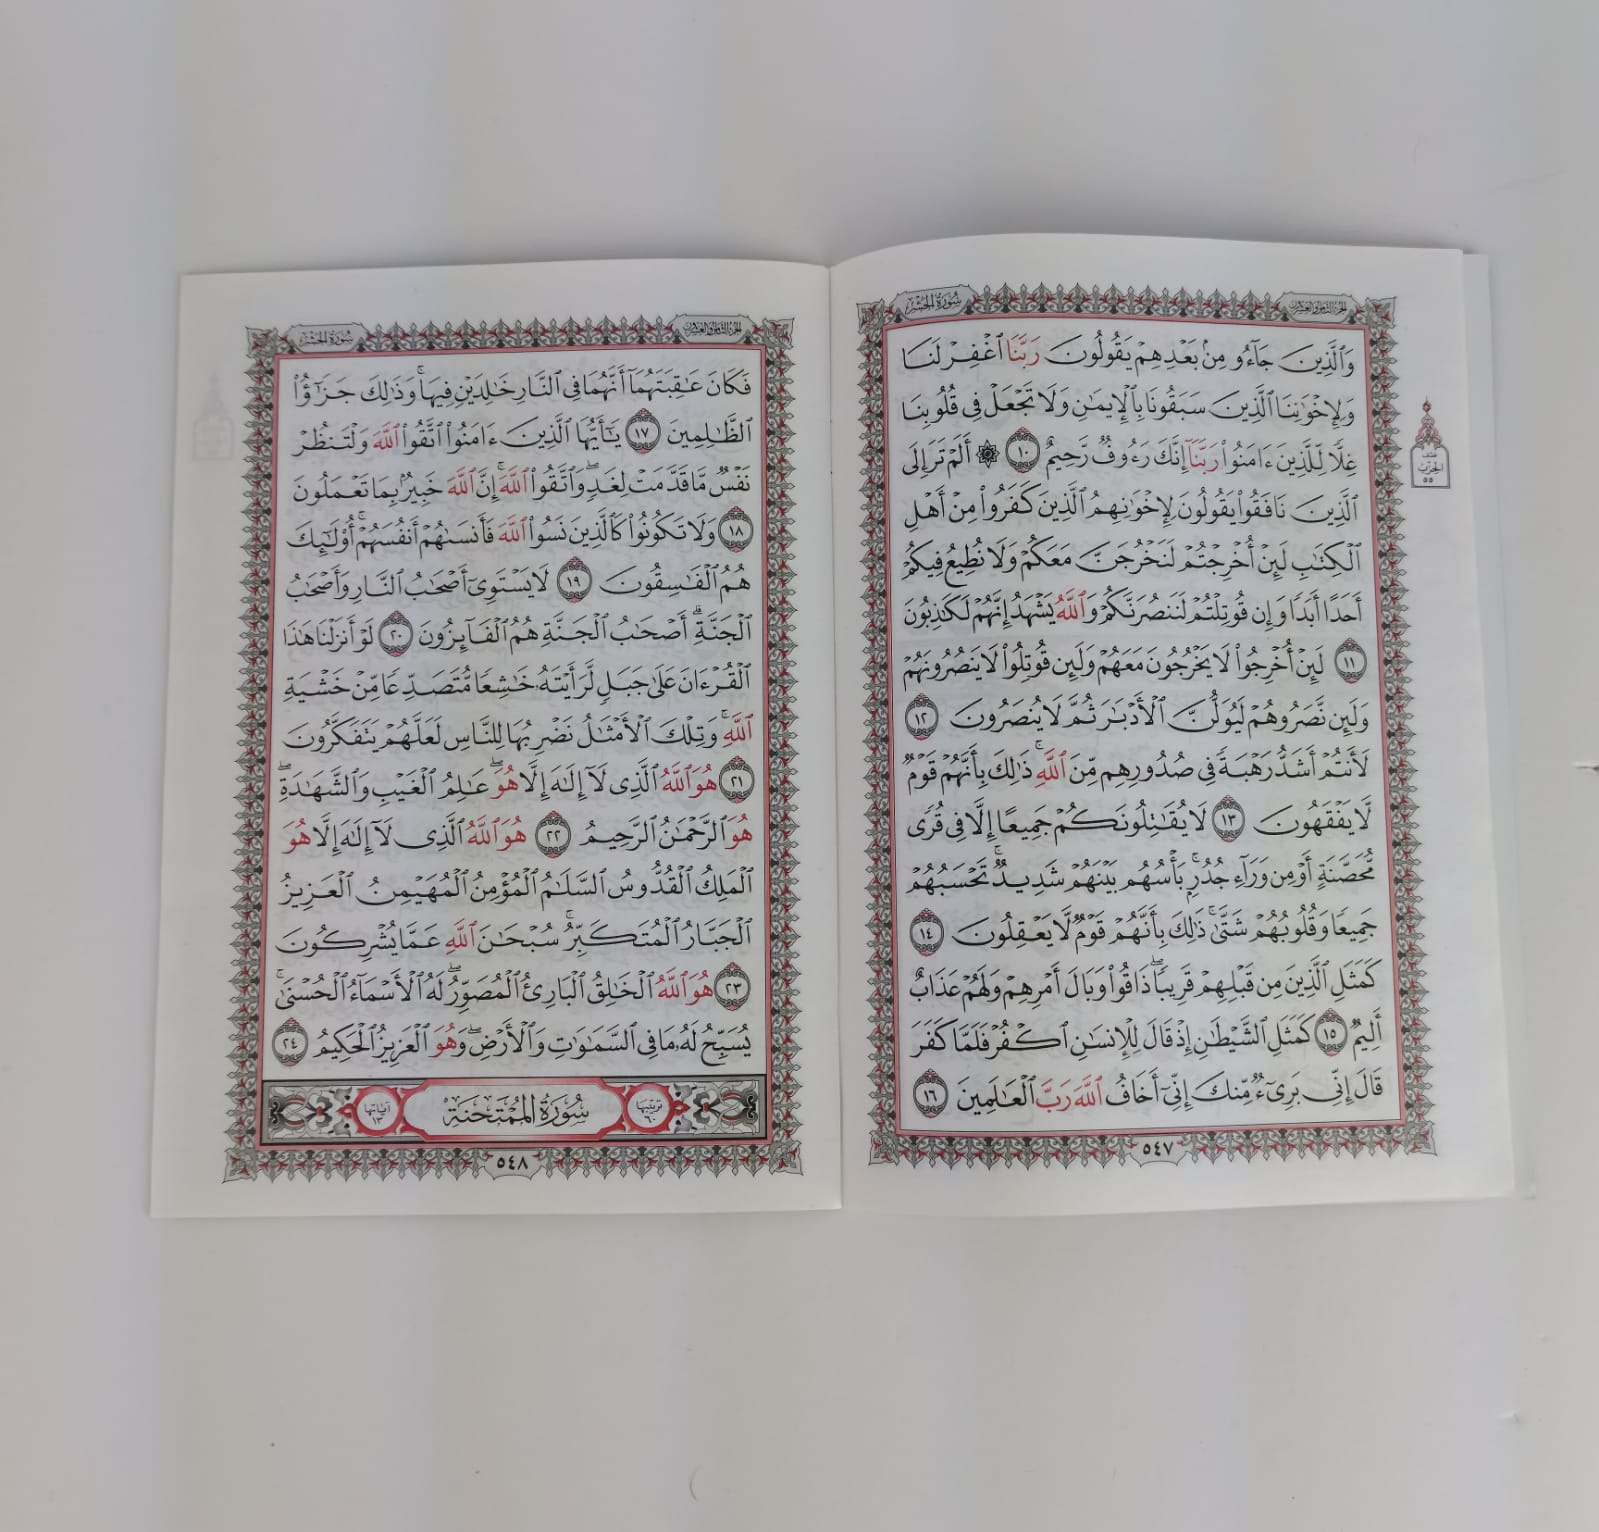 سُورَةُ الحَشْرِ
الجزء الثامن والعشرون
وَٱلَّذِينَ جَآءُو مِنۢ بَعْدِهِمْ يَقُولُونَ رَبَّنَا ٱغْفِرْ لَنَا
وَلِإِخْوَٰنِنَا ٱلَّذِينَ سَبَقُونَا بِٱلْإِيمَٰنِ وَلَا تَجْعَلْ فِى قُلُوبِنَا
غِلًّا لِّلَّذِينَ ءَامَنُوا۟ رَبَّنَآ إِنَّكَ رَءُوفٌ رَّحِيمٌ ١٠ ۞ أَلَمْ تَرَ إِلَى
ٱلَّذِينَ نَافَقُوا۟ يَقُولُونَ لِإِخْوَٰنِهِمُ ٱلَّذِينَ كَفَرُوا۟ مِنْ أَهْلِ
ٱلْكِتَٰبِ لَئِنْ أُخْرِجْتُمْ لَنَخْرُجَنَّ مَعَكُمْ وَلَا نُطِيعُ فِيكُمْ
أَحَدًا أَبَدًا وَإِن قُوتِلْتُمْ لَنَنصُرَنَّكُمْ وَٱللَّهُ يَشْهَدُ إِنَّهُمْ لَكَٰذِبُونَ
١١ لَئِنْ أُخْرِجُوا۟ لَا يَخْرُجُونَ مَعَهُمْ وَلَئِن قُوتِلُوا۟ لَا يَنصُرُونَهُمْ
وَلَئِن نَّصَرُوهُمْ لَيُوَلُّنَّ ٱلْأَدْبَٰرَ ثُمَّ لَا يُنصَرُونَ ١٢
لَأَنتُمْ أَشَدُّ رَهْبَةً فِى صُدُورِهِم مِّنَ ٱللَّهِ ۚ ذَٰلِكَ بِأَنَّهُمْ قَوْمٌ
لَّا يَفْقَهُونَ ١٣ لَا يُقَٰتِلُونَكُمْ جَمِيعًا إِلَّا فِى قُرًى
مُّحَصَّنَةٍ أَوْ مِن وَرَآءِ جُدُرٍۭ ۚ بَأْسُهُم بَيْنَهُمْ شَدِيدٌ ۚ تَحْسَبُهُمْ
جَمِيعًا وَقُلُوبُهُمْ شَتَّىٰ ۚ ذَٰلِكَ بِأَنَّهُمْ قَوْمٌ لَّا يَعْقِلُونَ ١٤
كَمَثَلِ ٱلَّذِينَ مِن قَبْلِهِمْ قَرِيبًا ۖ ذَاقُوا۟ وَبَالَ أَمْرِهِمْ وَلَهُمْ عَذَابٌ
أَلِيمٌ ١٥ كَمَثَلِ ٱلشَّيْطَٰنِ إِذْ قَالَ لِلْإِنسَٰنِ ٱكْفُرْ فَلَمَّا كَفَرَ
قَالَ إِنِّى بَرِىٓءٌ مِّنكَ إِنِّىٓ أَخَافُ ٱللَّهَ رَبَّ ٱلْعَٰلَمِينَ ١٦
٥٤٧
نصف
الحزب
٥٥
سُورَةُ الحَشْرِ
الجزء الثامن والعشرون
فَكَانَ عَٰقِبَتَهُمَآ أَنَّهُمَا فِى ٱلنَّارِ خَٰلِدَيْنِ فِيهَا ۚ وَذَٰلِكَ جَزَٰٓؤُا۟
ٱلظَّٰلِمِينَ ١٧ يَٰٓأَيُّهَا ٱلَّذِينَ ءَامَنُوا۟ ٱتَّقُوا۟ ٱللَّهَ وَلْتَنظُرْ
نَفْسٌ مَّا قَدَّمَتْ لِغَدٍ ۖ وَٱتَّقُوا۟ ٱللَّهَ ۚ إِنَّ ٱللَّهَ خَبِيرٌۢ بِمَا تَعْمَلُونَ
١٨ وَلَا تَكُونُوا۟ كَٱلَّذِينَ نَسُوا۟ ٱللَّهَ فَأَنسَىٰهُمْ أَنفُسَهُمْ ۚ أُو۟لَٰٓئِكَ
هُمُ ٱلْفَٰسِقُونَ ١٩ لَا يَسْتَوِىٓ أَصْحَٰبُ ٱلنَّارِ وَأَصْحَٰبُ
ٱلْجَنَّةِ ۚ أَصْحَٰبُ ٱلْجَنَّةِ هُمُ ٱلْفَآئِزُونَ ٢٠ لَوْ أَنزَلْنَا هَٰذَا
ٱلْقُرْءَانَ عَلَىٰ جَبَلٍ لَّرَأَيْتَهُۥ خَٰشِعًا مُّتَصَدِّعًا مِّنْ خَشْيَةِ
ٱللَّهِ ۚ وَتِلْكَ ٱلْأَمْثَٰلُ نَضْرِبُهَا لِلنَّاسِ لَعَلَّهُمْ يَتَفَكَّرُونَ
٢١ هُوَ ٱللَّهُ ٱلَّذِى لَآ إِلَٰهَ إِلَّا هُوَ ۖ عَٰلِمُ ٱلْغَيْبِ وَٱلشَّهَٰدَةِ ۖ
هُوَ ٱلرَّحْمَٰنُ ٱلرَّحِيمُ ٢٢ هُوَ ٱللَّهُ ٱلَّذِى لَآ إِلَٰهَ إِلَّا هُوَ
ٱلْمَلِكُ ٱلْقُدُّوسُ ٱلسَّلَٰمُ ٱلْمُؤْمِنُ ٱلْمُهَيْمِنُ ٱلْعَزِيزُ
ٱلْجَبَّارُ ٱلْمُتَكَبِّرُ ۚ سُبْحَٰنَ ٱللَّهِ عَمَّا يُشْرِكُونَ
٢٣ هُوَ ٱللَّهُ ٱلْخَٰلِقُ ٱلْبَارِئُ ٱلْمُصَوِّرُ ۖ لَهُ ٱلْأَسْمَآءُ ٱلْحُسْنَىٰ ۚ
يُسَبِّحُ لَهُۥ مَا فِى ٱلسَّمَٰوَٰتِ وَٱلْأَرْضِ ۖ وَهُوَ ٱلْعَزِيزُ ٱلْحَكِيمُ ٢٤
ترتيبها ٦٠ سُورَةُ المُمْتَحنَةِ آيَاتها ١٣
٥٤٨